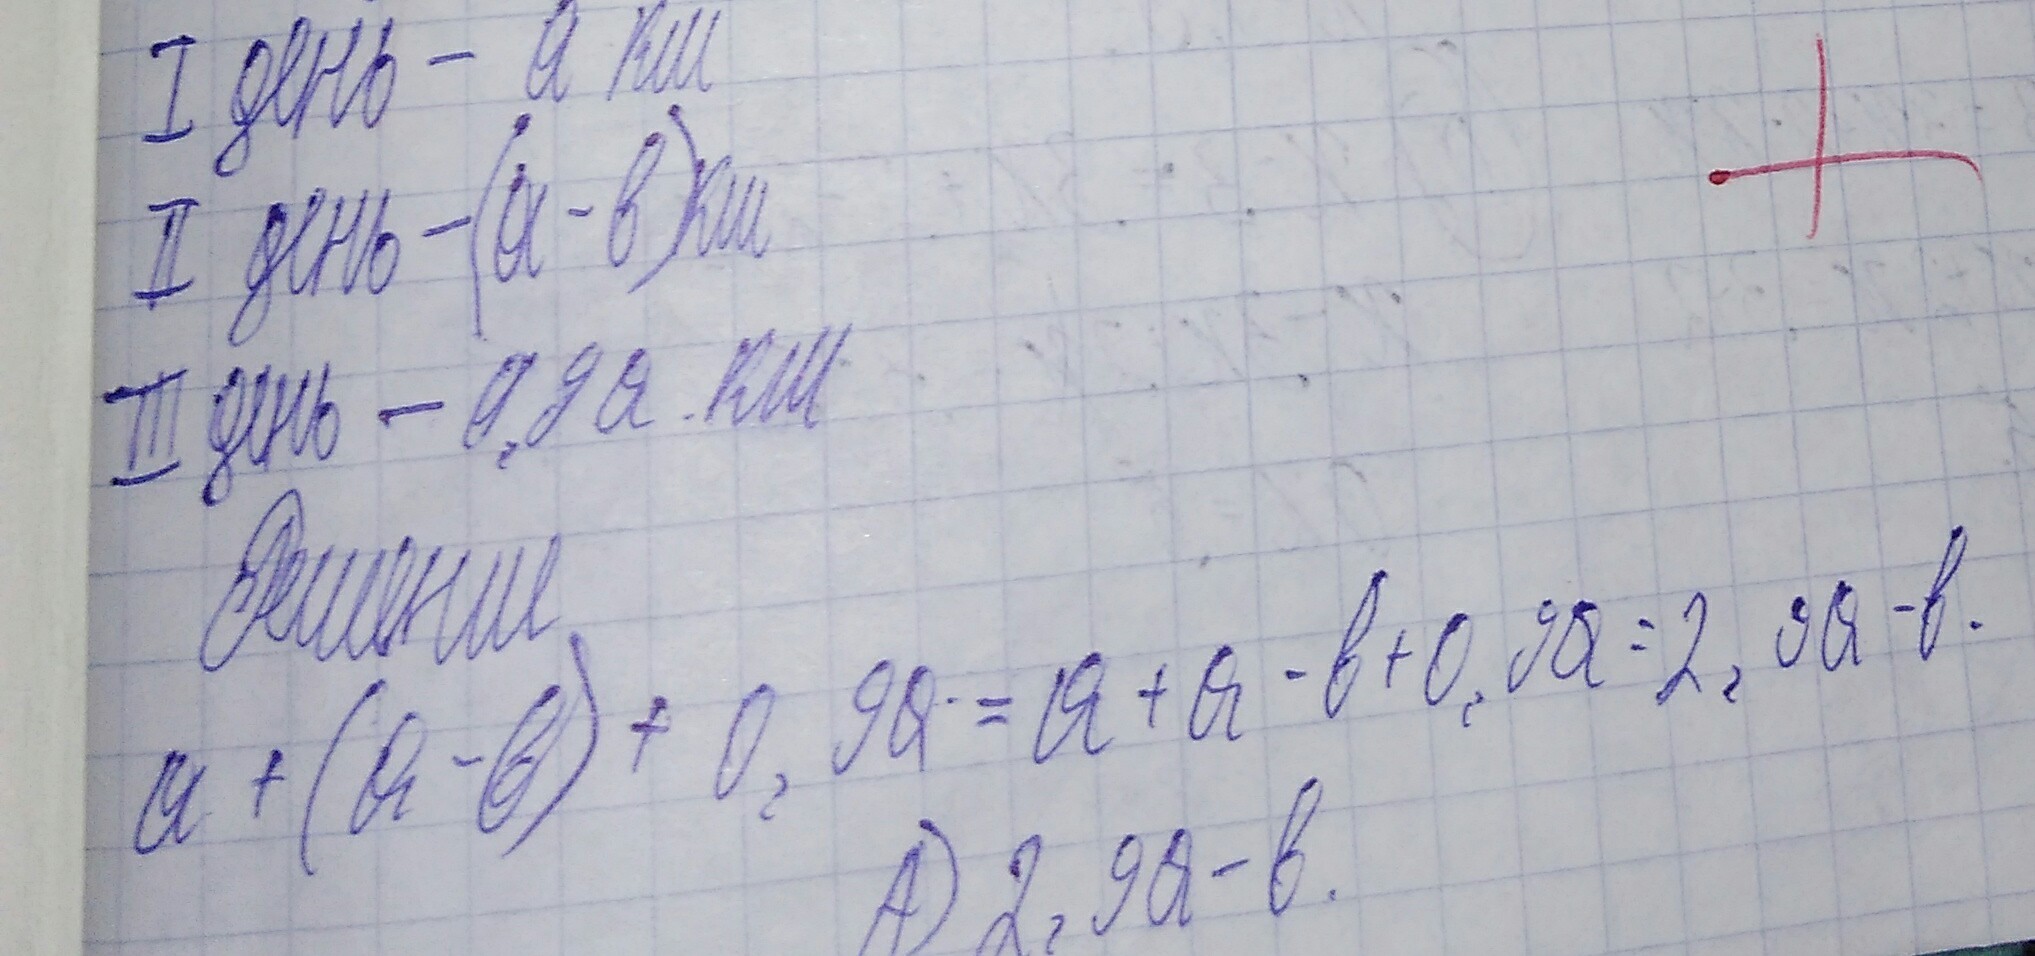 I день - а км
II день - (а - в) км
III день - 0,9а км
Решение
а + (а - в) + 0,9а = а + а - в + 0,9а = 2,9а - в.
А) 2,9а - в.